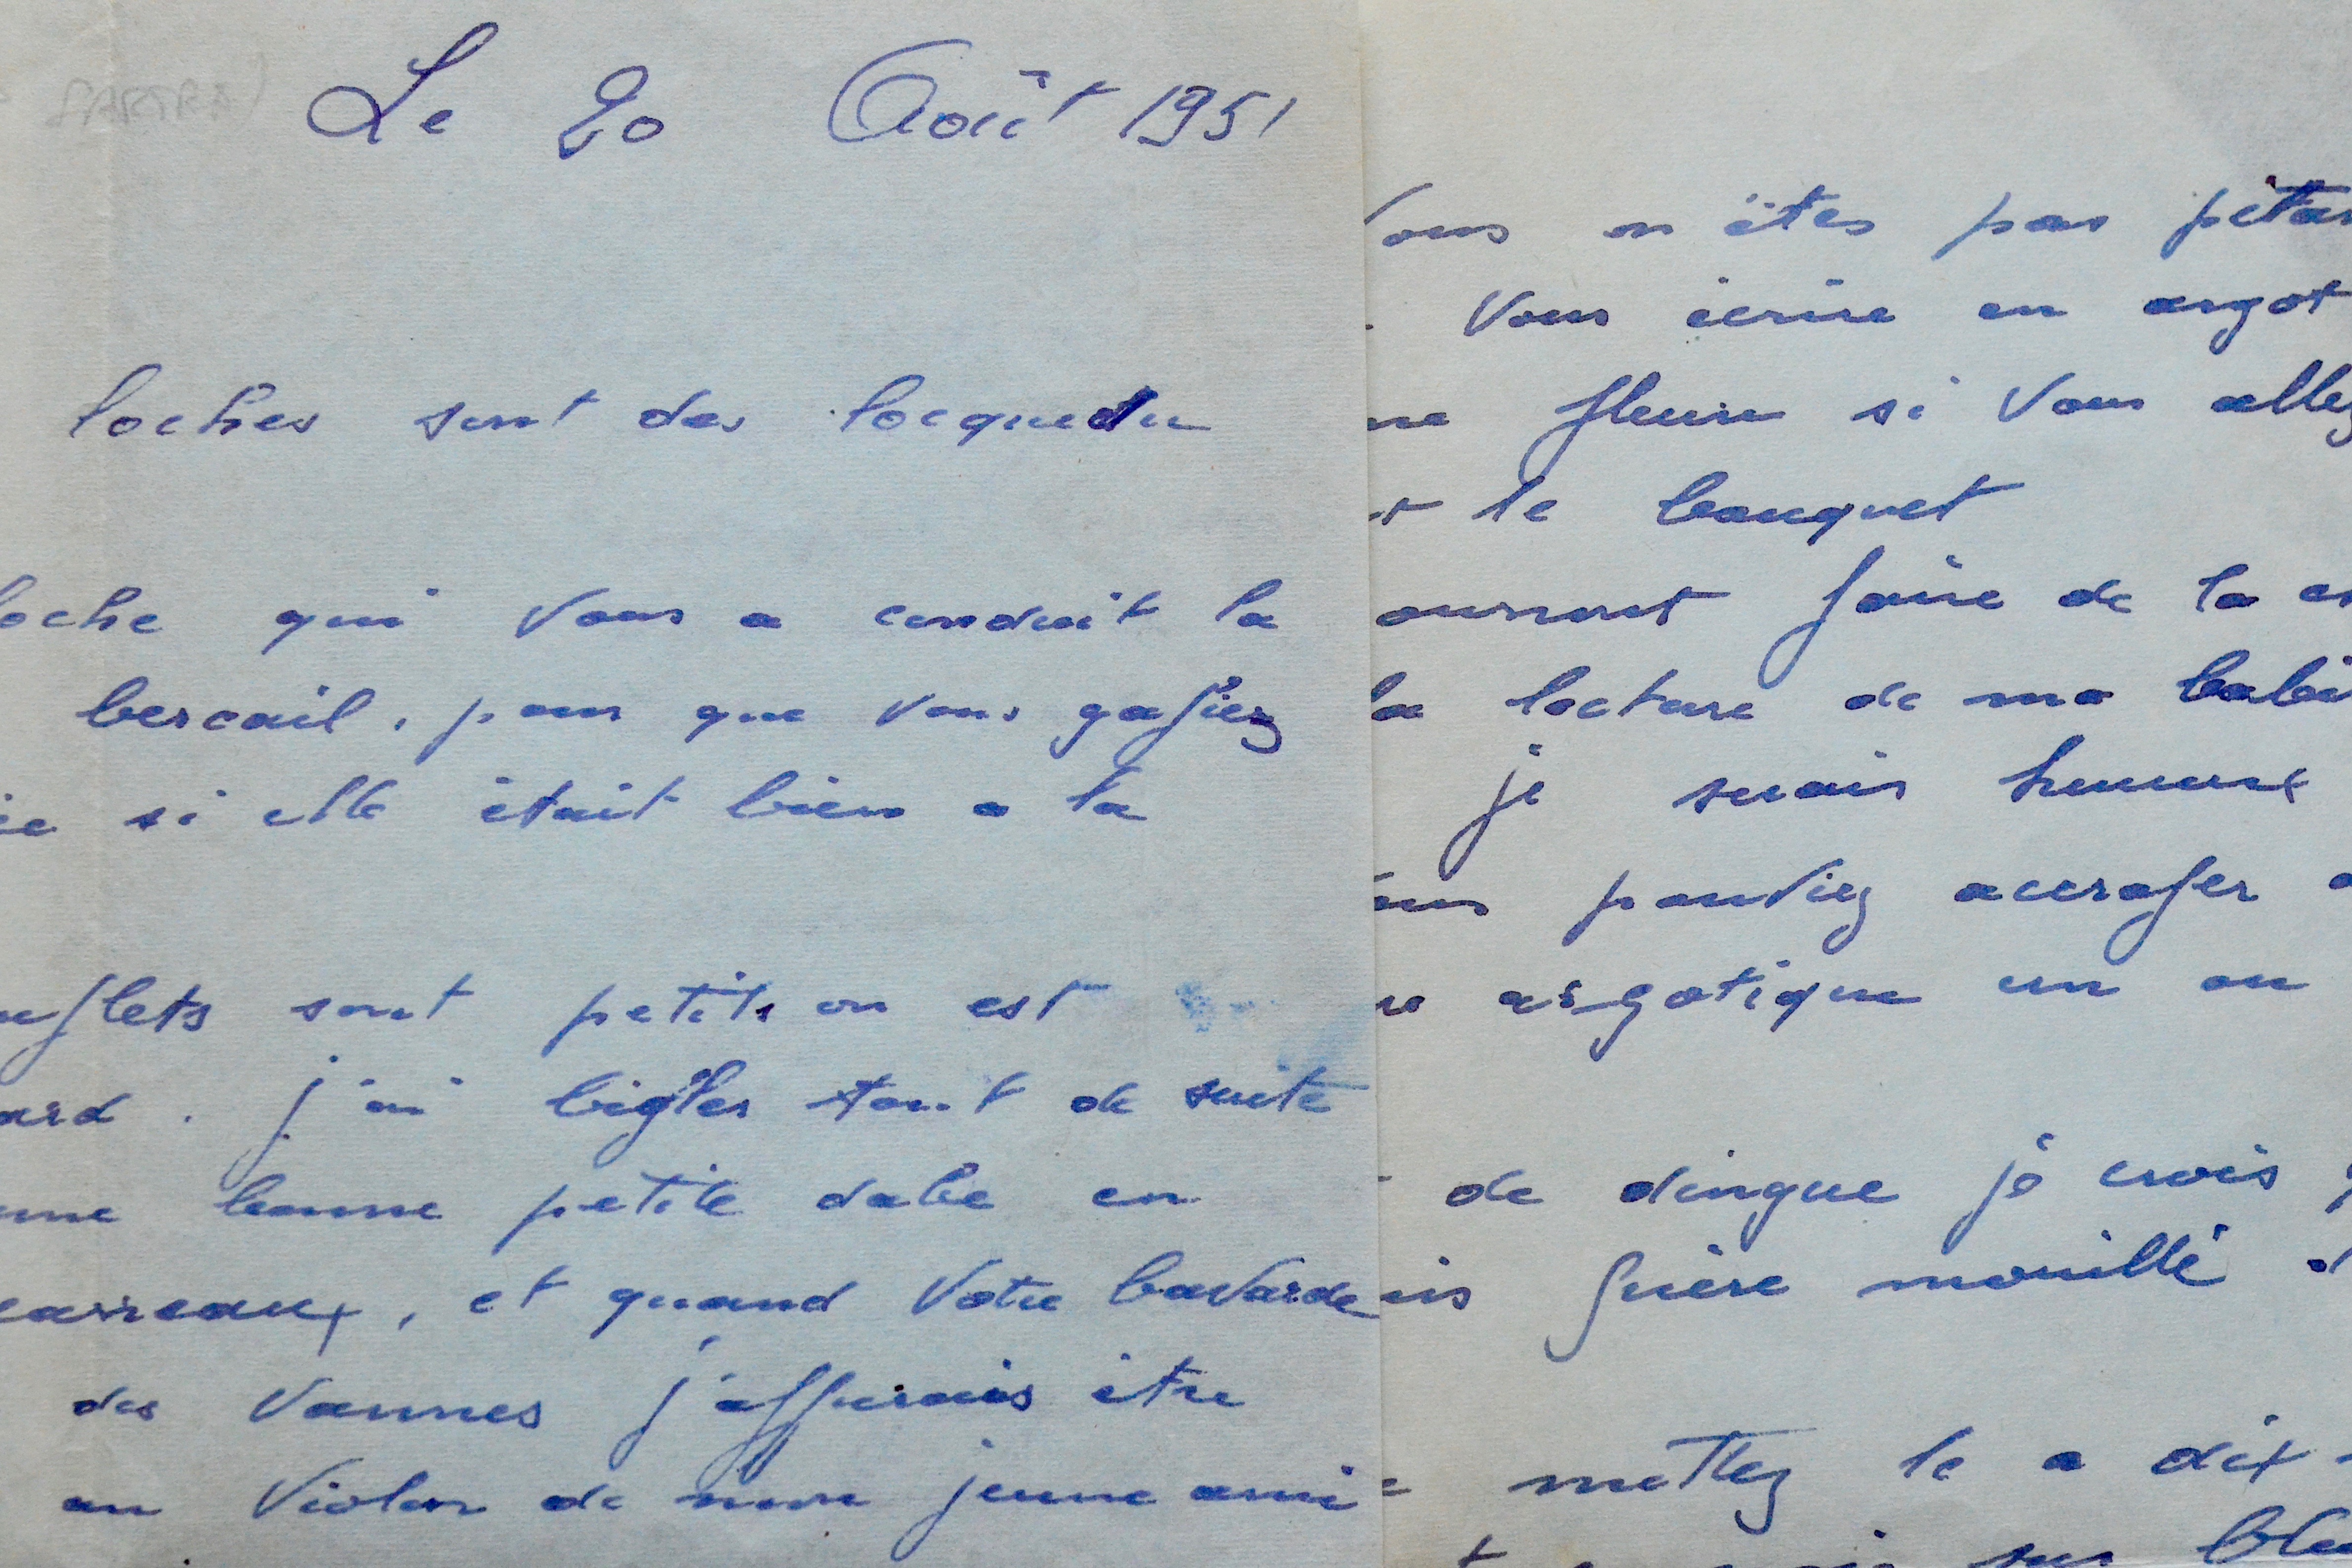 SARTRE)
Le 20 Août 1951
loches sont des locquedu
loche qui vous a conduit la
bercail, pour que vous gafiez
ie si elle était bien a la
uflets sont petits on est
ard. j'ai bigler tout de suite
une bonne petite dabe en
carreaux, et quand votre bavarde
des vannes j'affurais être
au violon de mon jeune ami
Vous n'êtes pas pétar
Vous écrire en argot
ne fleure si Vous allez
et le bouquet
ourront faire de la
la lecture de ma babi
je serais heureux
ous pouviez accrafer
re argotique un ou
de dingue je crois
is frère mouillé
mettez le a dix-
sur ble